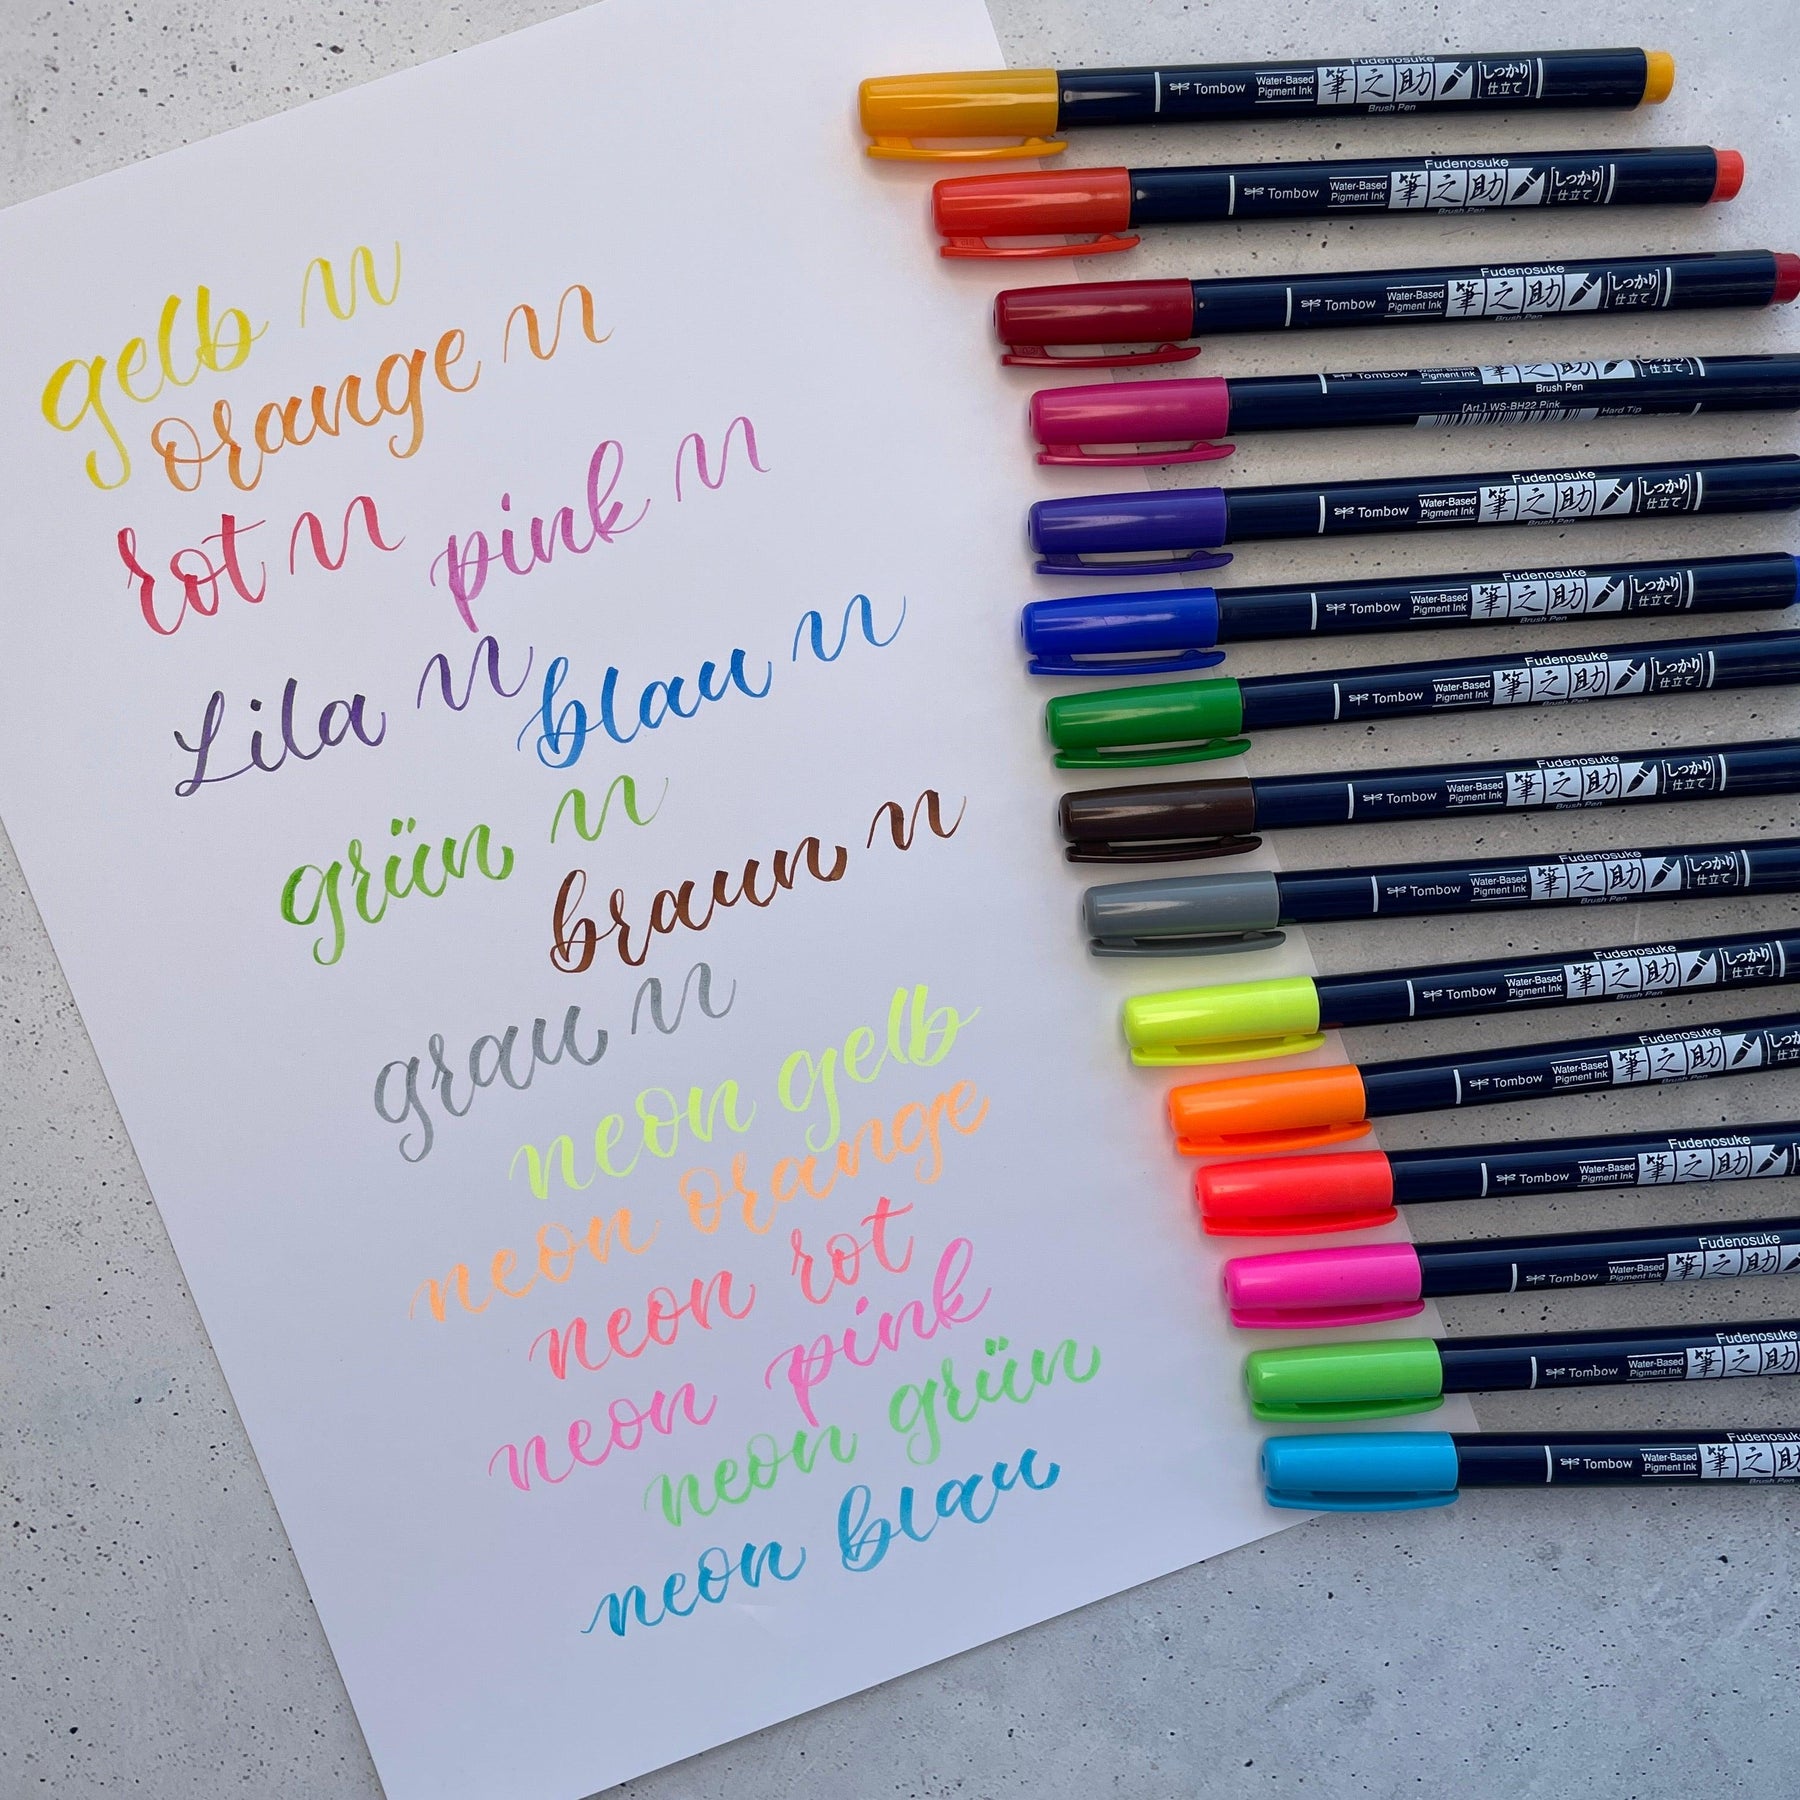 gelb
orange
rot
pink
Lila
blau
grün
braun
grau
neon gelb
neon orange
neon rot
neon pink
neon grün
neon blau
Fudenosuke
Tombow Water-Based Pigment Ink 筆之助 [しっかり仕立て]
Brush Pen
Fudenosuke
Tombow Water-Based Pigment Ink 筆之助 [しっかり仕立て]
Brush Pen
Fudenosuke
Tombow Water-Based Pigment Ink 筆之助 [しっかり仕立て]
Brush Pen
Tombow Pigment Ink 筆之助 仕立て
Brush Pen
[Art.] WS-BH22 Pink
Hard Tip
Fudenosuke
Tombow Water-Based Pigment Ink 筆之助 [しっかり仕立て]
Brush Pen
Fudenosuke
Tombow Water-Based Pigment Ink 筆之助 [しっかり仕立て]
Brush Pen
Fudenosuke
Tombow Water-Based Pigment Ink 筆之助 [しっかり仕立て]
Brush Pen
Fudenosuke
Tombow Water-Based Pigment Ink 筆之助 [しっかり仕立て]
Brush Pen
Fudenosuke
Tombow Water-Based Pigment Ink 筆之助 [しっかり仕立て]
Brush Pen
Fudenosuke
Tombow Water-Based Pigment Ink 筆之助 [しっかり仕立て]
Brush Pen
Fudenosuke
Tombow Water-Based Pigment Ink 筆之助
Brush Pen
Fudenosuke
Tombow Water-Based Pigment Ink 筆之助
Brush Pen
Fudenosuke
Tombow Water-Based Pigment Ink 筆之助
Brush Pen
Fudenosuke
Tombow Water-Based Pigment Ink 筆之助
Brush Pen
Fudenosuke
Tombow Water-Based Pigment Ink 筆之助
Brush Pen